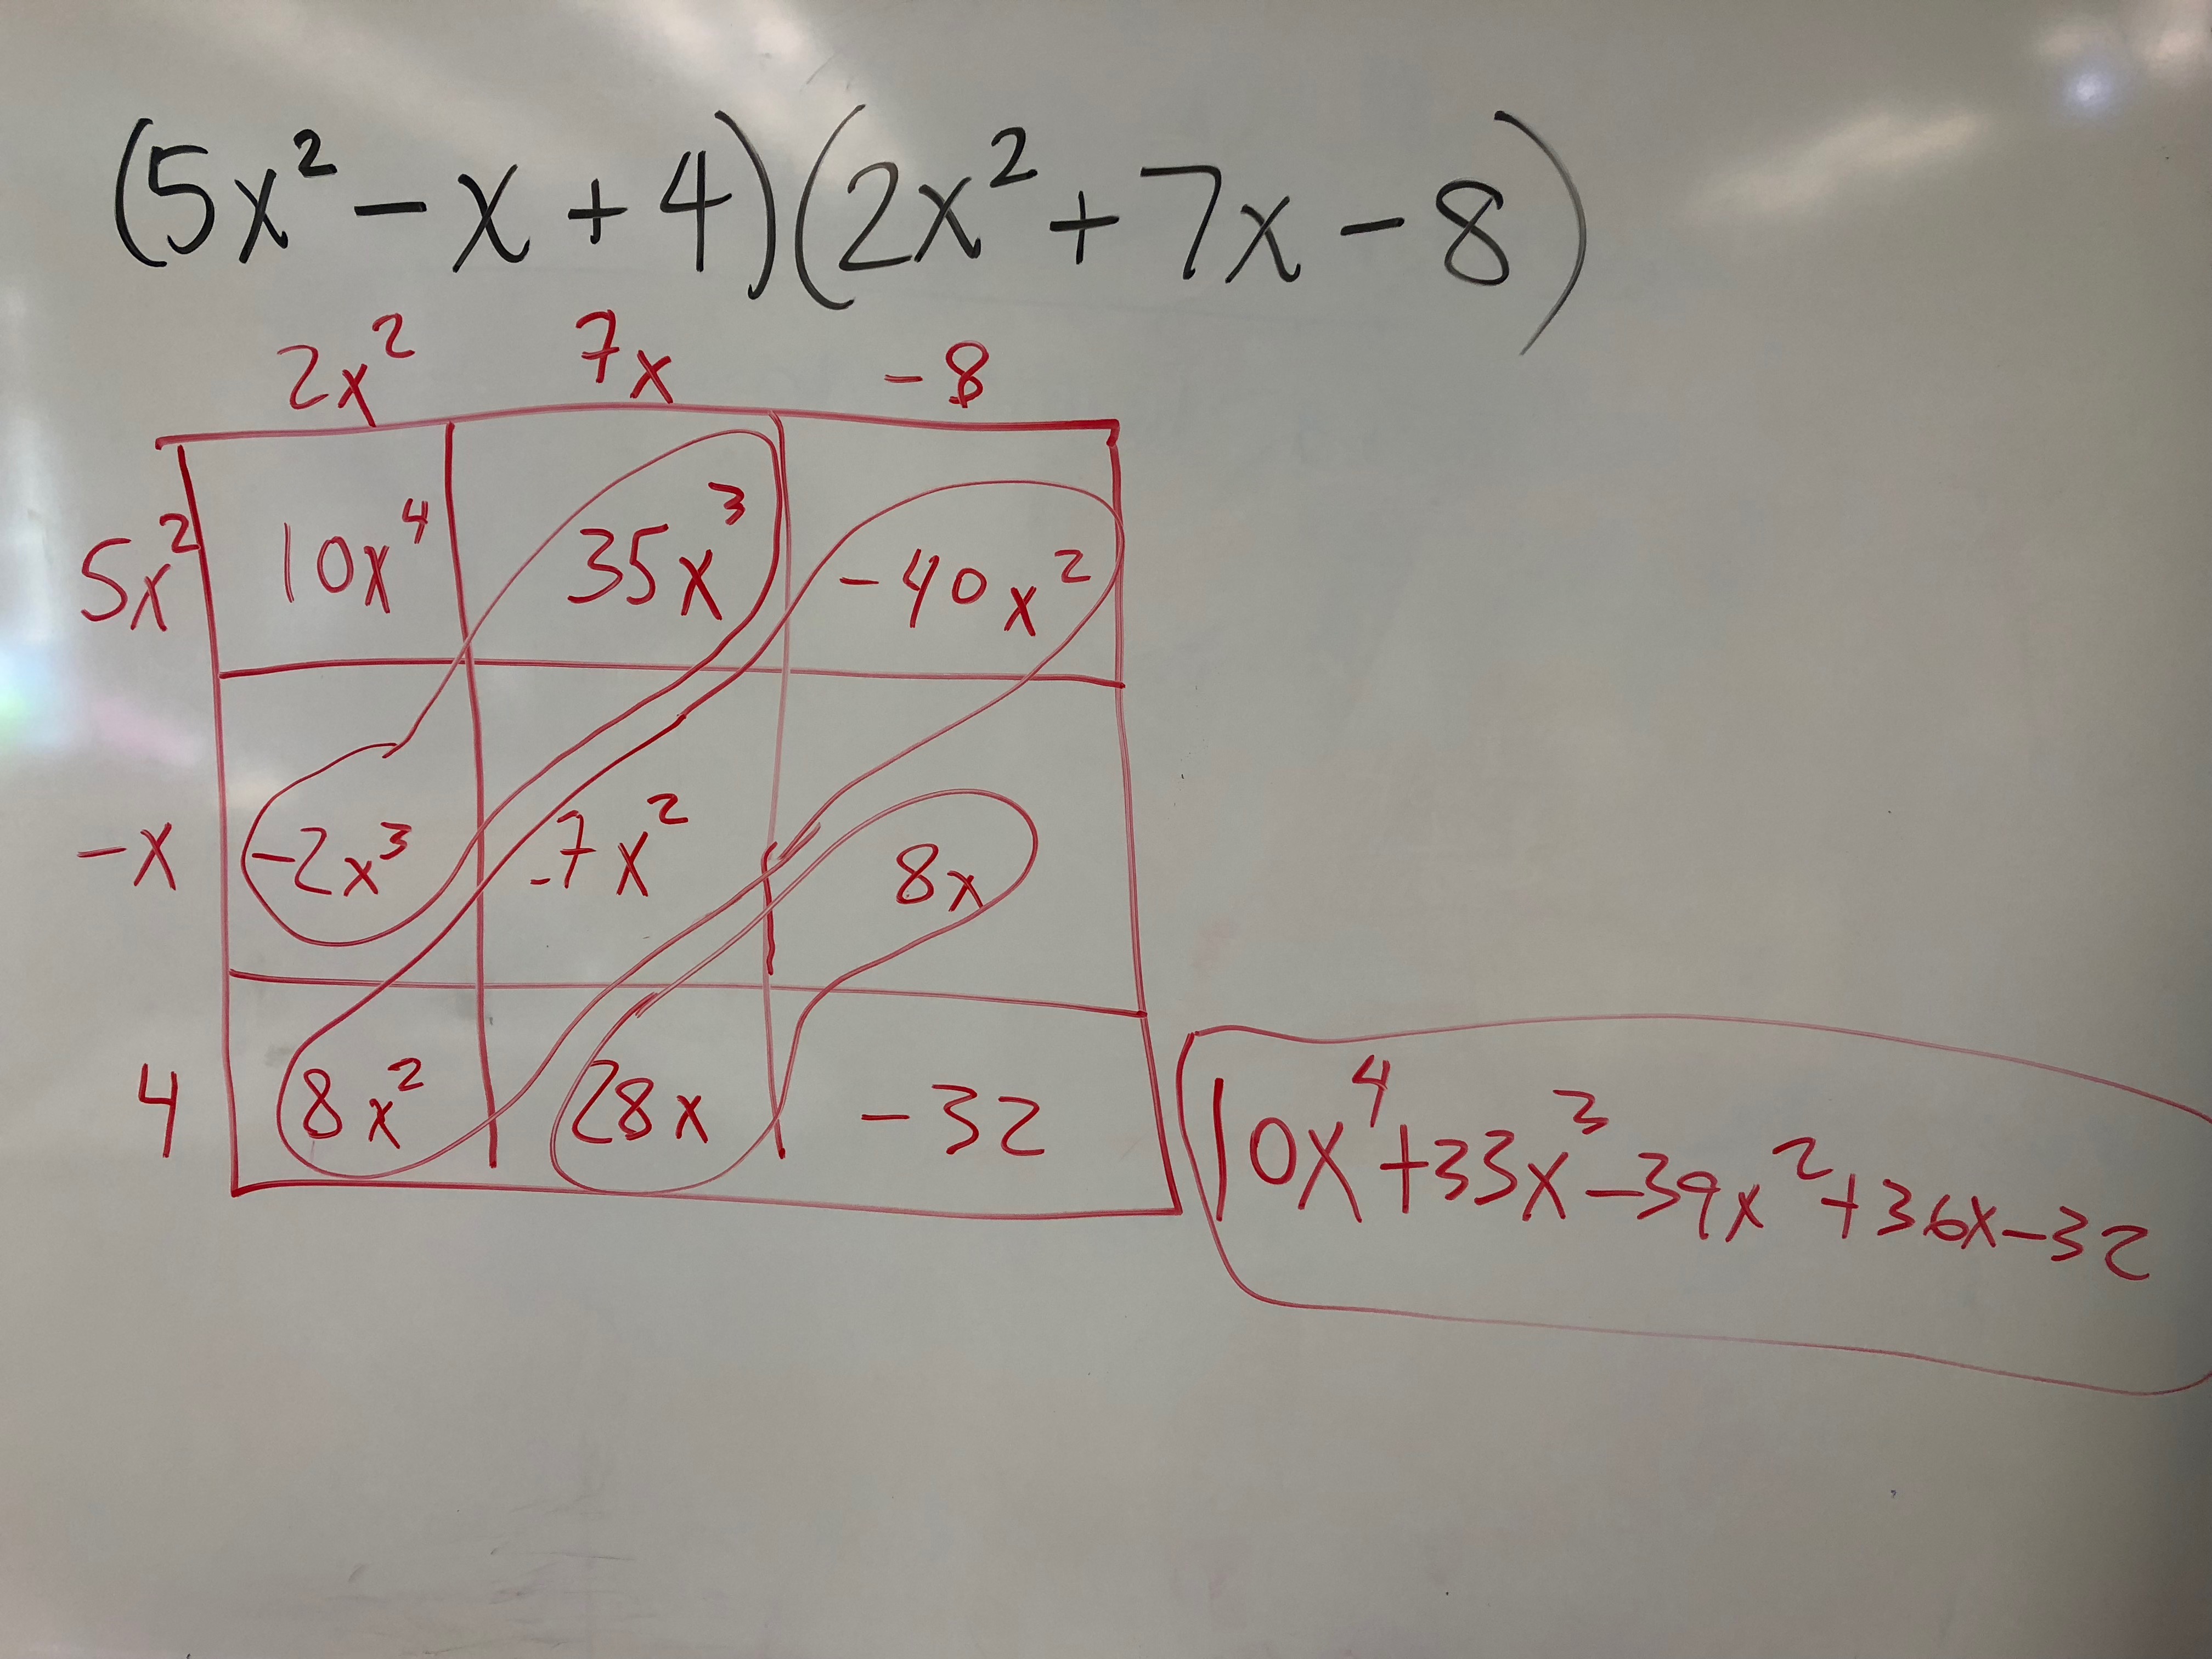 (5x² - x + 4)(2x² + 7x - 8)
2x² 7x -8
5x² 10x⁴ 35x³ -40x²
-x -2x³ -7x² 8x
4 8x² 28x -32
10x⁴+33x³-39x²+36x-32